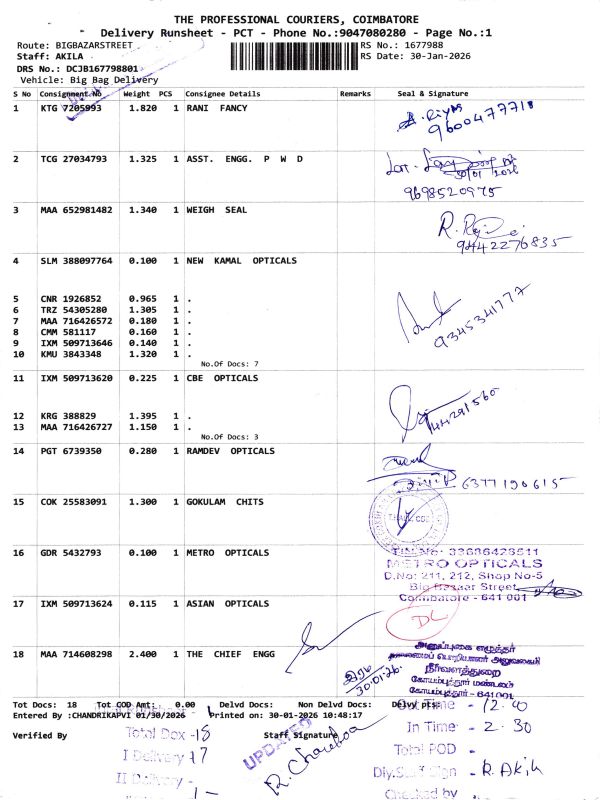 THE PROFESSIONAL COURIERS, COIMBATORE
Delivery Runsheet - PCT - Phone No.:9047080280 - Page No.:1
Route: BIGBAZARSTREET
RS No.: 1677988
Staff: AKILA
RS Date: 30-Jan-2026
DRS No.: DCJB167798801
Vehicle: Big Bag Delivery
S No Consignment No Weight PCS Consignee Details Remarks Seal & Signature
1 KTG 7205993 1.820 1 RANI FANCY
9600477718
2 TCG 27034793 1.325 1 ASST. ENGG. P W D
30/01/2026
9698520975
3 MAA 652981482 1.340 1 WEIGH SEAL
9442276835
4 SLM 388097764 0.100 1 NEW KAMAL OPTICALS
5 CNR 1926852 0.965 1 .
6 TRZ 54305280 1.305 1 .
7 MAA 716426572 0.180 1 .
8 CMM 581117 0.160 1 .
9 IXM 509713646 0.140 1 .
10 KMU 3843348 1.320 1 .
9345341777
No.Of Docs: 7
11 IXM 509713620 0.225 1 CBE OPTICALS
12 KRG 388829 1.395 1 .
13 MAA 716426727 1.150 1 .
No.Of Docs: 3
14 PGT 6739350 0.280 1 RAMDEV OPTICALS
6377190615
15 COK 25583091 1.300 1 GOKULAM CHITS
16 GDR 5432793 0.100 1 METRO OPTICALS
METRO OPTICALS
D.No: 211, 212, Shop No-5
Big Bazaar Street
Coimbatore - 641 001
17 IXM 509713624 0.115 1 ASIAN OPTICALS
DL
18 MAA 714608298 2.400 1 THE CHIEF ENGG
அனுப்புகை எழுத்தர்
தலைமைப் பொறியாளர் அலுவலகம்
நீர்வளத்துறை
கோயம்புத்தூர் மண்டலம்
கோயம்புத்தூர் - 641001
30.01.26
Tot Docs: 18 Tot COD Amt: 0.00 Delvd Docs: Non Delvd Docs: Delvy pts:
Entered By :CHANDRIKAPVI 01/30/2026 Printed on: 30-01-2026 10:48:17
Out Time - 12.40
Verified By
Staff Signature
Total Dox - 18
In Time - 2.30
I Delivery - 17
UPDATED
Total POD -
II Delivery -
Dly.Staff Sign - R. Akila
Checked by